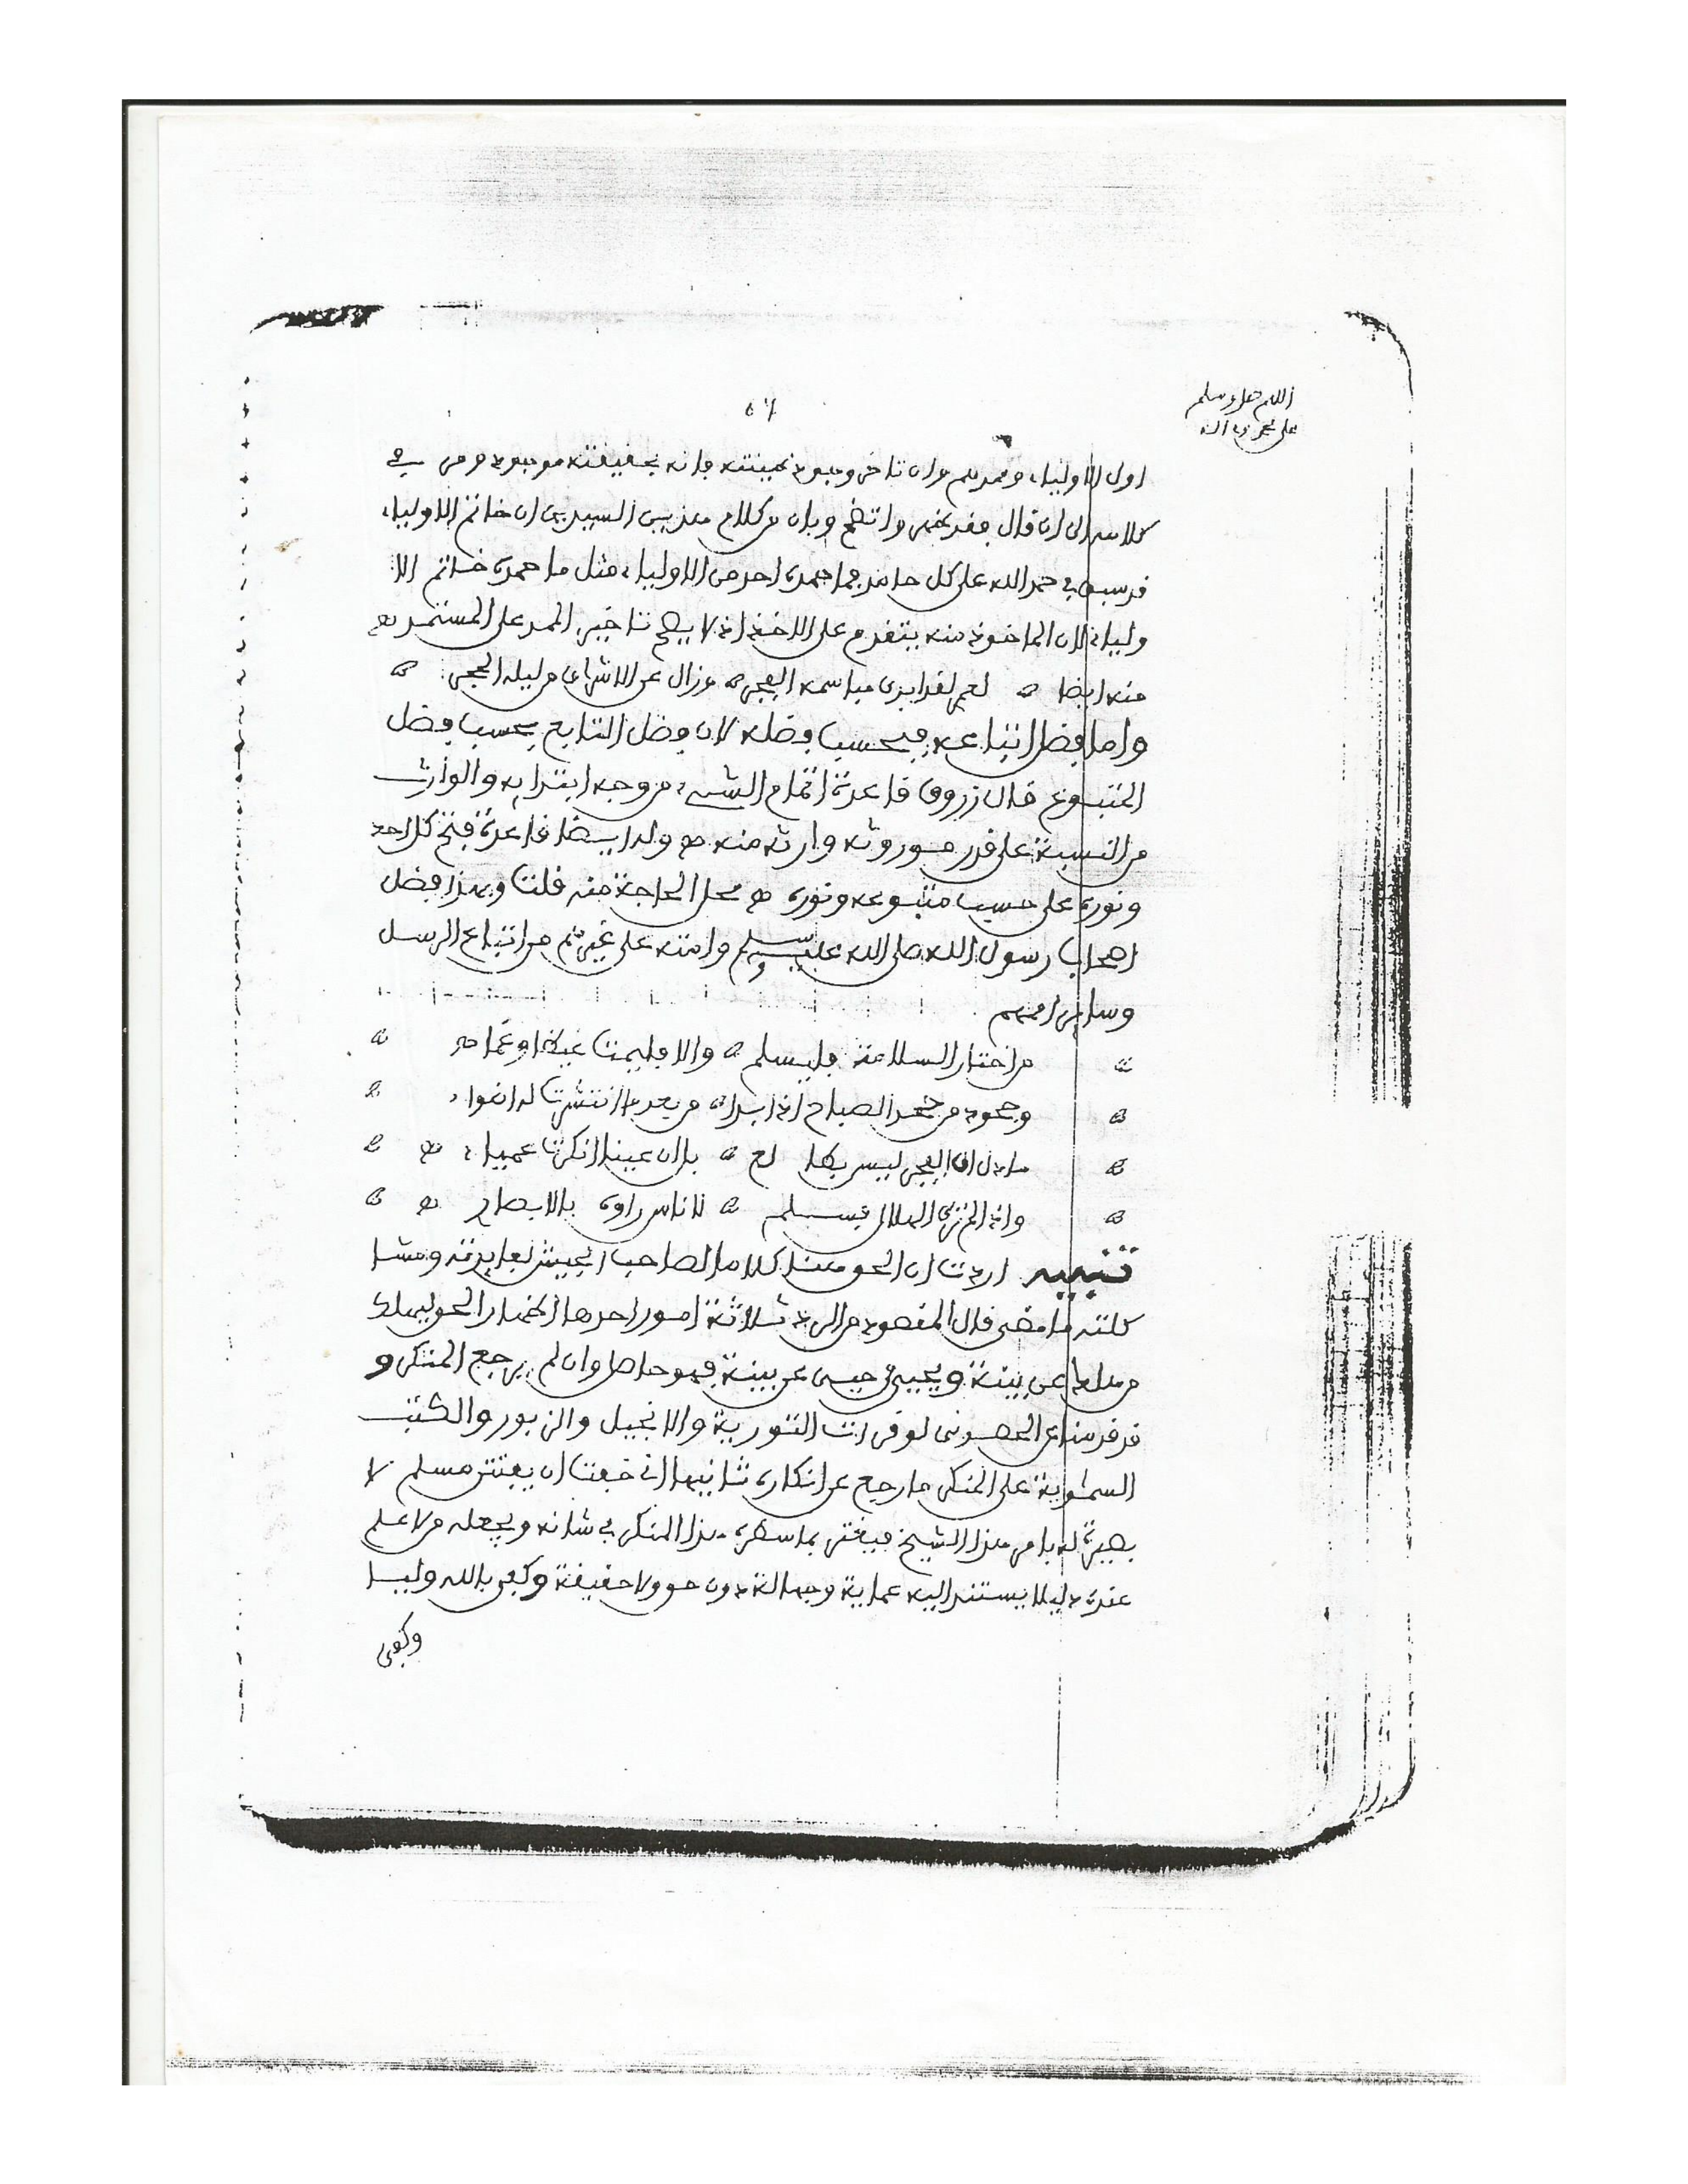 اللهم صل وسلم
على محمد وآله
٥٦
اول الاولياء وممدهم وان تاخر وجود طينته فانه بحقيقته موجود ومن في
كلامه الى ان قال فقد ظهر واتضح وبان من كلام هذين السيدين ان خاتم الاولياء
قد سبق في حمد الله على كل حامد فما حمده احد من الاولياء مثل ما حمده خاتم الا
ولياء لان الماخوذ منه يتقدم على الاخذ اذ لا يصح تاخير الممد على المستمد
منه ايضا لعمر لقد ابدى مباسمه الفجر وزال عن الاشراق من ليله الحجر
واما فضل اتباعه فبحسب فضله لان فضل التابع بحسب فضل
المتبوع قال زروق قاعدة اتمام الشيء من وجه ابتدايه والوارث
من النسبة على قدر موروثه وارثه منه وله ايضا قاعدة فتح كل احد
ونوره على حسب متبوعه ونوره محل الحاجة منه قلت وبهذا فضل
اصحاب رسول الله صلى الله عليه وسلم وامته على غيرهم من اتباع الرسل
وساير اممهم
من اختار السلامة فليسلم والا فليمت غيظا وغما
وجحود من جحد الصباح اذا بدا من بعد ما انتشرت له اضواء
ما دل ان الفجر ليس بطالع بل ان عينا انكرت عمياء
واذا لم تر الهلال فسلم لاناس راوه بالابصار
تنبيه اردت ان الحق هنا كلاما لصاحب الجيش لفايدته ومشا
كلته ما مضى قال المقصود من الرد ثلاثة امور احدها اظهار الحق ليهلك
من هلك عن بينة ويحيى من حيي عن بينة فهو حاصل وان لم يرجع المنكر و
قد قدمنا عن الحضرمي لو قرات التورية والانجيل والزبور والكتب
السماوية على المنكر ما رجع عن انكاره ثانيها اني خفت ان يغتر مسلم لا
بصيرة له بامر هذا الشيخ فيغتر بما سطره هذا المنكر في شانه ويجعله من لا علم
عنده دليلا يستند اليه عماية وجهالة دون حق ولا حقيقة وكفى بالله وليا
وكفى